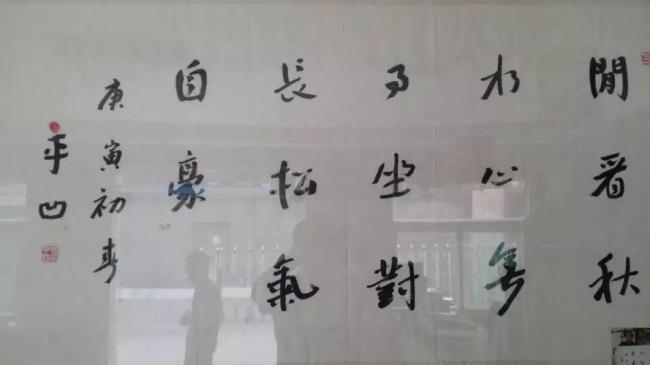 閒看秋
水心無
事坐對
長松氣
自豪
庚寅初春
平凹